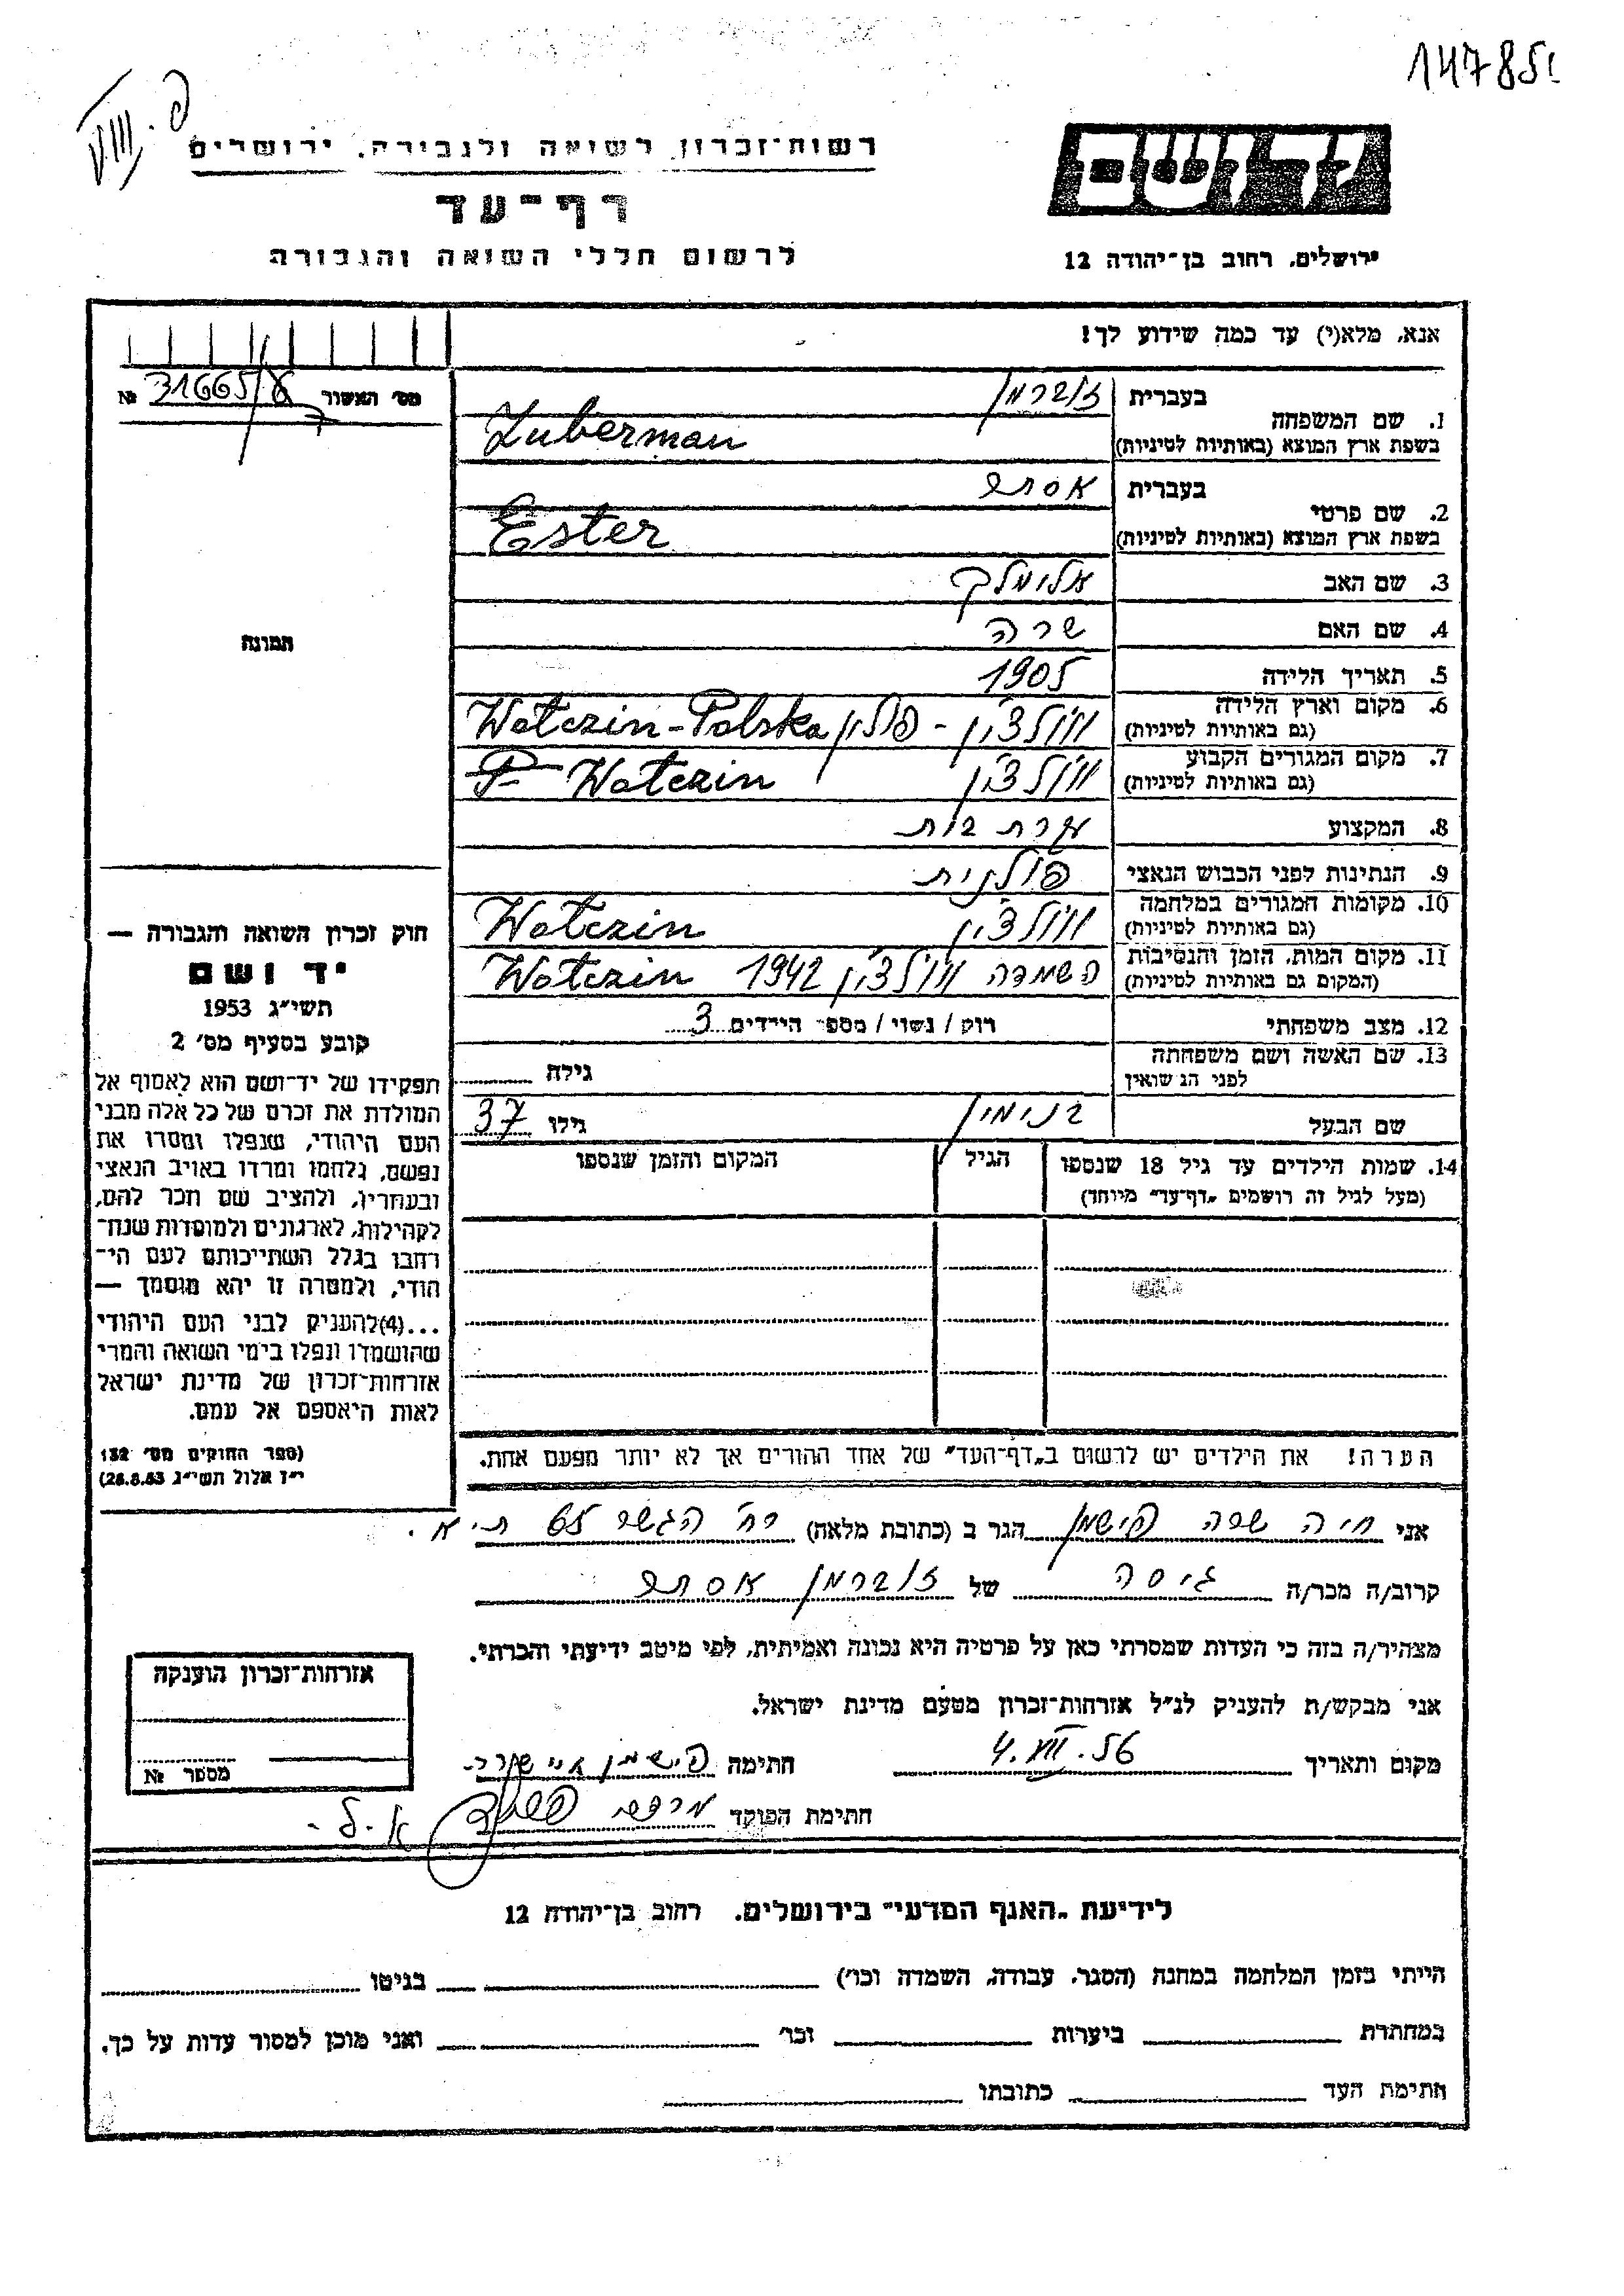 14785
VIII. פ
רשות־זכרון לשואה ולגבורה, ירושלים
דף־עד
לרשום חללי השואה והגבורה
ידושם
ירושלים, רחוב בן־יהודה 12
אנא, מלא(י) עד כמה שידוע לך!
מס׳ האשור 31665/ № 7
1. שם המשפחה
בעברית זוברמן
בשפת ארץ המוצא (באותיות לטיניות) Zuberman
2. שם פרטי
בעברית אסתר
בשפת ארץ המוצא (באותיות לטיניות) Ester
3. שם האב אלימלך
4. שם האם שרה
5. תאריך הלידה 1905
6. מקום וארץ הלידה (גם באותיות לטיניות) וולצ׳ין - פולין Wotczin-Polska
7. מקום המגורים הקבוע (גם באותיות לטיניות) וולצ׳ין Wotczin
8. המקצוע עקרת בית
9. הנתינות לפני הכבוש הנאצי פולנית
10. מקומות המגורים במלחמה (גם באותיות לטיניות) וולצ׳ין Wotczin
11. מקום המות, הזמן והנסיבות (המקום גם באותיות לטיניות) השמדה וולצ׳ין 1942 Wotczin
12. מצב משפחתי רוק / נשוי / מספר הילדים 3
13. שם האשה ושם משפחתה לפני הנשואין גילה
שם הבעל בנימין גילו 37
14. שמות הילדים עד גיל 18 שנספו (מעל לגיל זה רושמים „דף־עד״ מיוחד)
הגיל
המקום והזמן שנספו
הערה! את הילדים יש לרשום ב„דף־העד״ של אחד ההורים אך לא יותר מפעם אחת.
תמונה
חוק זכרון השואה והגבורה —
יד ושם
תשי״ג 1953
קובע בסעיף מס׳ 2
תפקידו של יד־ושם הוא לאסוף אל
המולדת את זכרם של כל אלה מבני
העם היהודי, שנפלו ומסרו את
נפשם, נלחמו ומרדו באויב הנאצי
ובעוזריו, ולהציב שם וזכר להם,
לקהילות, לארגונים ולמוסדות שנח־
רבו בגלל השתייכותם לעם הי־
הודי, ולמטרה זו יהא מוסמך —
...(4)להעניק לבני העם היהודי
שהושמדו ונפלו בימי השואה והמרי
אזרחות־זכרון של מדינת ישראל
לאות היאספם אל עמם.
(ספר החוקים מס׳ 132,
י״ז אלול תשי״ג 28.8.53)
אני חיה שרה פישמן הגר ב (כתובת מלאה) רח׳ הגשר 65 ת״א.
קרוב/ה מכר/ה גיסה של זוברמן אסתר
מצהיר/ה בזה כי העדות שמסרתי כאן על פרטיה היא נכונה ואמיתית, לפי מיטב ידיעתי והכרתי.
אני מבקש/ת להעניק לנ״ל אזרחות־זכרון מטעם מדינת ישראל.
מקום ותאריך 4.VII.56 חתימה פישמן
חתימת הפוקד
אזרחות־זכרון הוענקה
מספר №
לידיעת „האגף המדעי״ בירושלים, רחוב בן־יהודה 12
הייתי בזמן המלחמה במחנה (הסגר, עבודה, השמדה וכו׳) בגיטו
במחתרת ביערות וכו׳ ואני מוכן למסור עדות על כך.
חתימת העד כתובתו